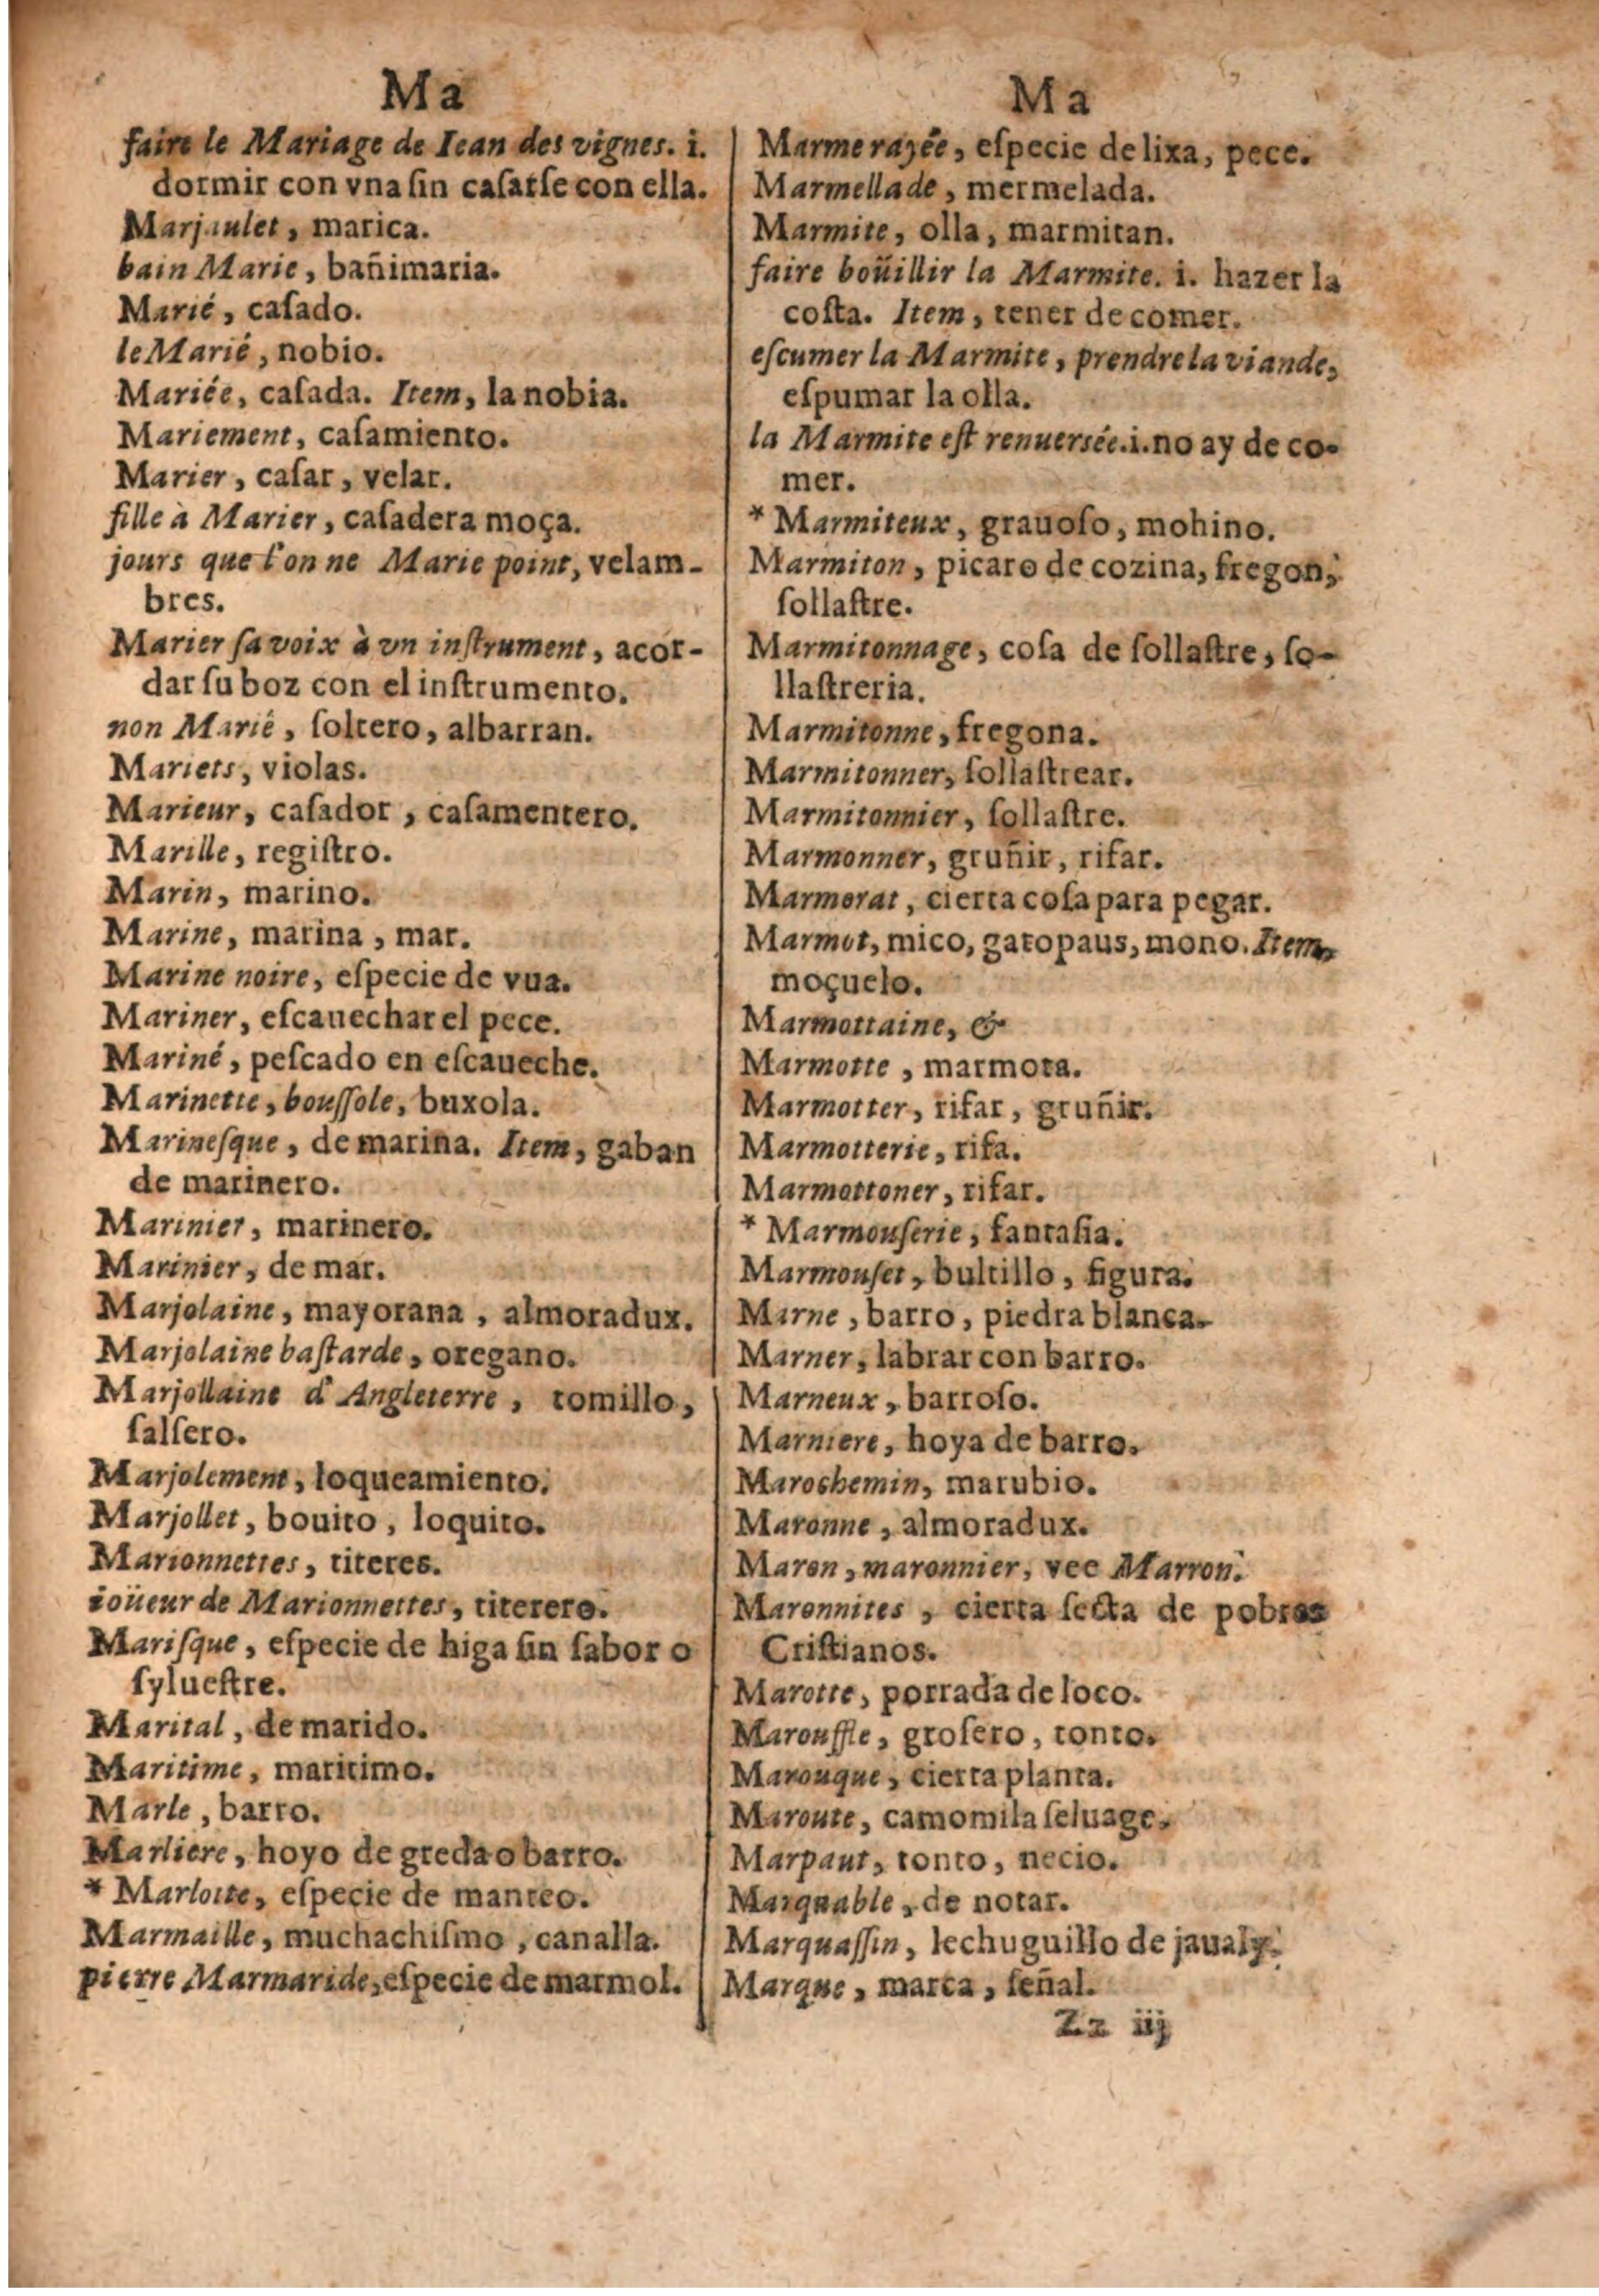 Ma
faire le Mariage de Iean des vignes. i.
dormir con vna ſin caſarſe con ella.
Marjaulet, marica.
bain Marie, bañimaria.
Marié, caſado.
le Marié, nobio.
Mariée, caſada. Item, la nobia.
Mariement, caſamiento.
Marier, caſar, velar.
fille à Marier, caſadera moça.
jours que l'on ne Marie point, velam-
bres.
Marier ſa voix à vn inſtrument, acor-
dar ſu boz con el inſtrumento.
non Marié, ſoltero, albarran.
Mariets, violas.
Marieur, caſador, caſamentero.
Marille, regiſtro.
Marin, marino.
Marine, marina, mar.
Marine noire, eſpecie de vua.
Mariner, eſcauechar el pece.
Mariné, peſcado en eſcaueche.
Marinette, bouſſole, buxola.
Marineſque, de marina. Item, gaban
de marinero.
Marinier, marinero.
Marinier, de mar.
Marjolaine, mayorana, almoradux.
Marjolaine baſtarde, oregano.
Marjollaine d'Angleterre, tomillo,
ſalſero.
Marjolement, loqueamiento.
Marjollet, bouito, loquito.
Marionnettes, titeres.
ioüeur de Marionnettes, titerero.
Mariſque, eſpecie de higa ſin ſabor o
ſylueſtre.
Marital, de marido.
Maritime, maritimo.
Marle, barro.
Marliere, hoyo de greda o barro.
* Marlotte, eſpecie de manteo.
Marmaille, muchachiſmo, canalla.
pierre Marmaride, eſpecie de marmol.
Ma
Marme rayée, eſpecie de lixa, pece.
Marmellade, mermelada.
Marmite, olla, marmitan.
faire boüillir la Marmite. i. hazer la
coſta. Item, tener de comer.
eſcumer la Marmite, prendre la viande,
eſpumar la olla.
la Marmite eſt renuersée. i. no ay de co-
mer.
* Marmiteux, grauoſo, mohino.
Marmiton, picaro de cozina, fregon,
ſollaſtre.
Marmitonnage, coſa de ſollaſtre, ſo-
llaſtreria.
Marmitonne, fregona.
Marmitonner, ſollaſtrear.
Marmitonnier, ſollaſtre.
Marmonner, gruñir, rifar.
Marmorat, cierta coſa para pegar.
Marmot, mico, gatopaus, mono. Item,
moçuelo.
Marmottaine, &
Marmotte, marmota.
Marmotter, rifar, gruñir.
Marmotterie, rifa.
Marmottoner, rifar.
* Marmouſerie, fantaſia.
Marmouſet, bultillo, figura.
Marne, barro, piedra blanca.
Marner, labrar con barro.
Marneux, barroſo.
Marniere, hoya de barro.
Marochemin, marubio.
Maronne, almoradux.
Maron, maronnier, vee Marron.
Maronnites, cierta ſecta de pobres
Criſtianos.
Marotte, porrada de loco.
Marouffle, groſero, tonto.
Marouque, cierta planta.
Maroute, camomila ſeluage.
Marpaut, tonto, necio.
Marquable, de notar.
Marquaſſin, lechuguillo de jaualy.
Marque, marca, ſeñal.
Zz iij